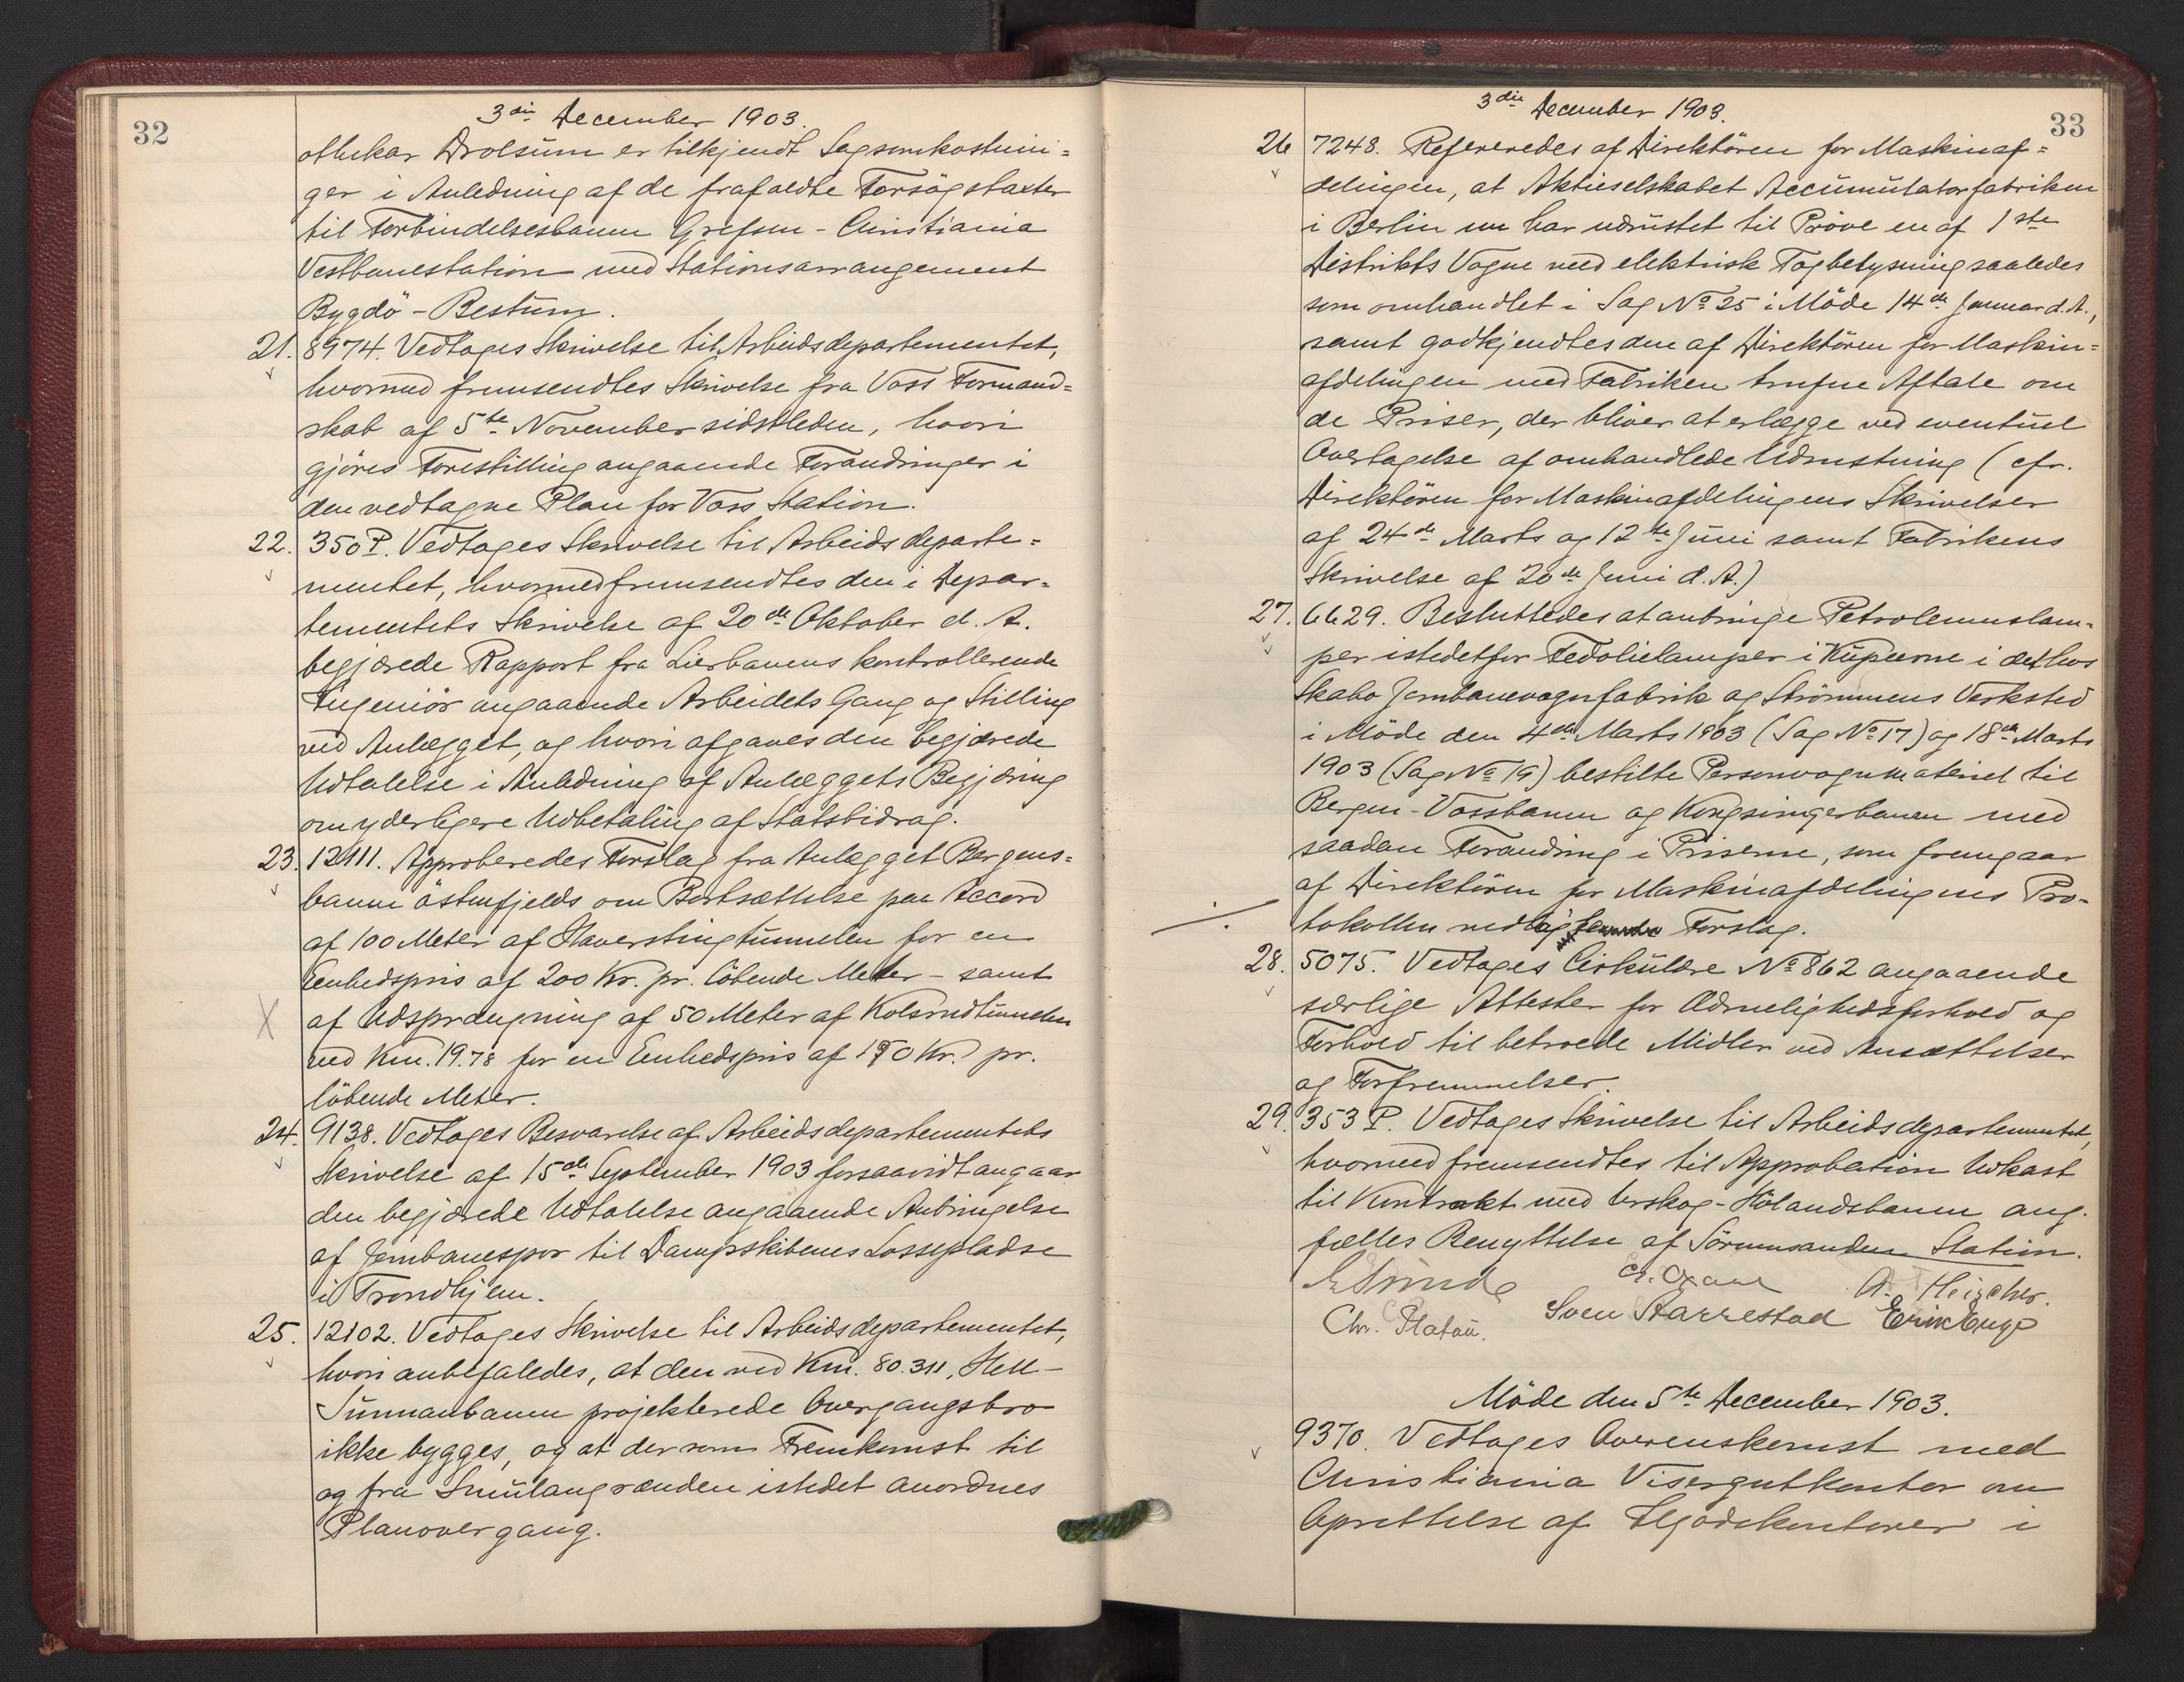 32
3die December 1903.
othekar Drolsum er tilkjendt Sagsomkostnin=
ger i Anledning af de frafaldte Forsøgstaxter
til Forbindelsesbanen Grefsen - Christiania
Vestbanestation med Stationsarrangement
Bygdö - Bestum.
21. 8974. Vedtoges Skrivelse til Arbeidsdepartementet,
hvormed fremsendtes Skrivelse fra Voss Formand=
skab af 5te November sidstleden, hvori
gjöres Forestilling angaaende Forandringer i
den vedtagne Plan for Voss Station.
22. 350 P. Vedtoges Skrivelse til Arbeidsdeparte=
mentet, hvormed fremsendtes den i Depar=
tementets Skrivelse af 20de Oktober d. A.
begjærede Rapport fra Lierbanens kontrollerende
Ingeniör angaaende Arbeidets Gang og Stilling
ved Anlægget, og hvori afgaves den begjærede
Udtalelse i Anledning af Anlæggets Begjæring
om yderligere Udbetaling af Statsbidrag.
23. 12111. Approberedes Forslag fra Anlægget Bergens=
banen östenfjelds om Bortsættelse paa Accord
af 100 Meter af Haverstingtunnelen for en
Eenhedspris af 200 Kr. pr. löbende Meter - samt
af Udsprængning af 50 Meter af Kolsrudtunnelen
ved Km. 19.78 for en Eenhedspris af 170 Kr. pr.
löbende Meter.
24. 9138. Vedtoges Besvarelse af Arbeidsdepartementets
Skrivelse af 15de September 1903 forsaavidt angaar
den begjærede Udtalelse angaaende Anbringelse
af Jernbanespor til Dampskibenes Lossepladse
i Trondhjem.
25. 12102. Vedtoges Skrivelse til Arbeidsdepartementet,
hvori anbefaledes, at den ved Km. 80.311, Hell-
Sunnanbanen projekterede Overgangsbro
ikke bygges, og at der som Fremkomst til
og fra Smulangranden istedet anordnes
Planovergang.
33
3die December 1903.
26 7248. Refereredes af Direktören for Maskinaf=
delingen, at Aktieselskabet Accumulatorfabriken
i Berlin nu har udrustet til Pröve en af 1ste
Distrikts Vogne med elektrisk Togbelysning saaledes
som omhandlet i Sag No 25 i Möde 14de Januar d. A.,
samt godkjendtes den af Direktören for Maskin=
afdelingen med Fabriken trufne Aftale om
de Priser, der bliver at erlægge ved eventuel
Overtagelse af omhandlede Udrustning (cfr.
Direktören for Maskinafdelingens Skrivelser
af 24de Marts og 12te Juni samt Fabrikens
Skrivelse af 20de Juni d. A.)
27. 6629. Besluttedes at anbringe Petroleumslam-
per istedetfor Fedolielamper i Kupeerne i det hos
Skabo Jernbanevognfabrik og Strömmens Verksted
i Möde den 4de Marts 1903 (Sag No 17) og 18de Marts
1903 (Sag No 19) bestilte Personvognmateriel til
Bergen-Vossbanen og Kongsvingerbanen med
saadan Forandring i Priserne, som fremgaar
af Direktören for Maskinafdelingens Pro-
tokollen vedlagte Forslag.
28. 5075. Vedtoges Cirkulære No 862 angaaende
særlige Attester for Ædruelighedsforhold og
Forhold til betroede Midler ved Ansættelser
og Forfremmelser.
29. 353 P. Vedtoges Skrivelse til Arbeidsdepartementet,
hvormed fremsendtes til Approbation Udkast
til Kontrakt med Urskog-Hölandsbanen ang.
fælles Benyttelse af Sörumsanden Station.
E Sunde
A. Fleischer.
Chr. Platou.
Sven Aarrestad
Erik Enge
Möde den 5te December 1903.
9370. Vedtoges Overenskomst med
Christiania Visergutkontor om
Oprettelse af Ilgodskontorer i